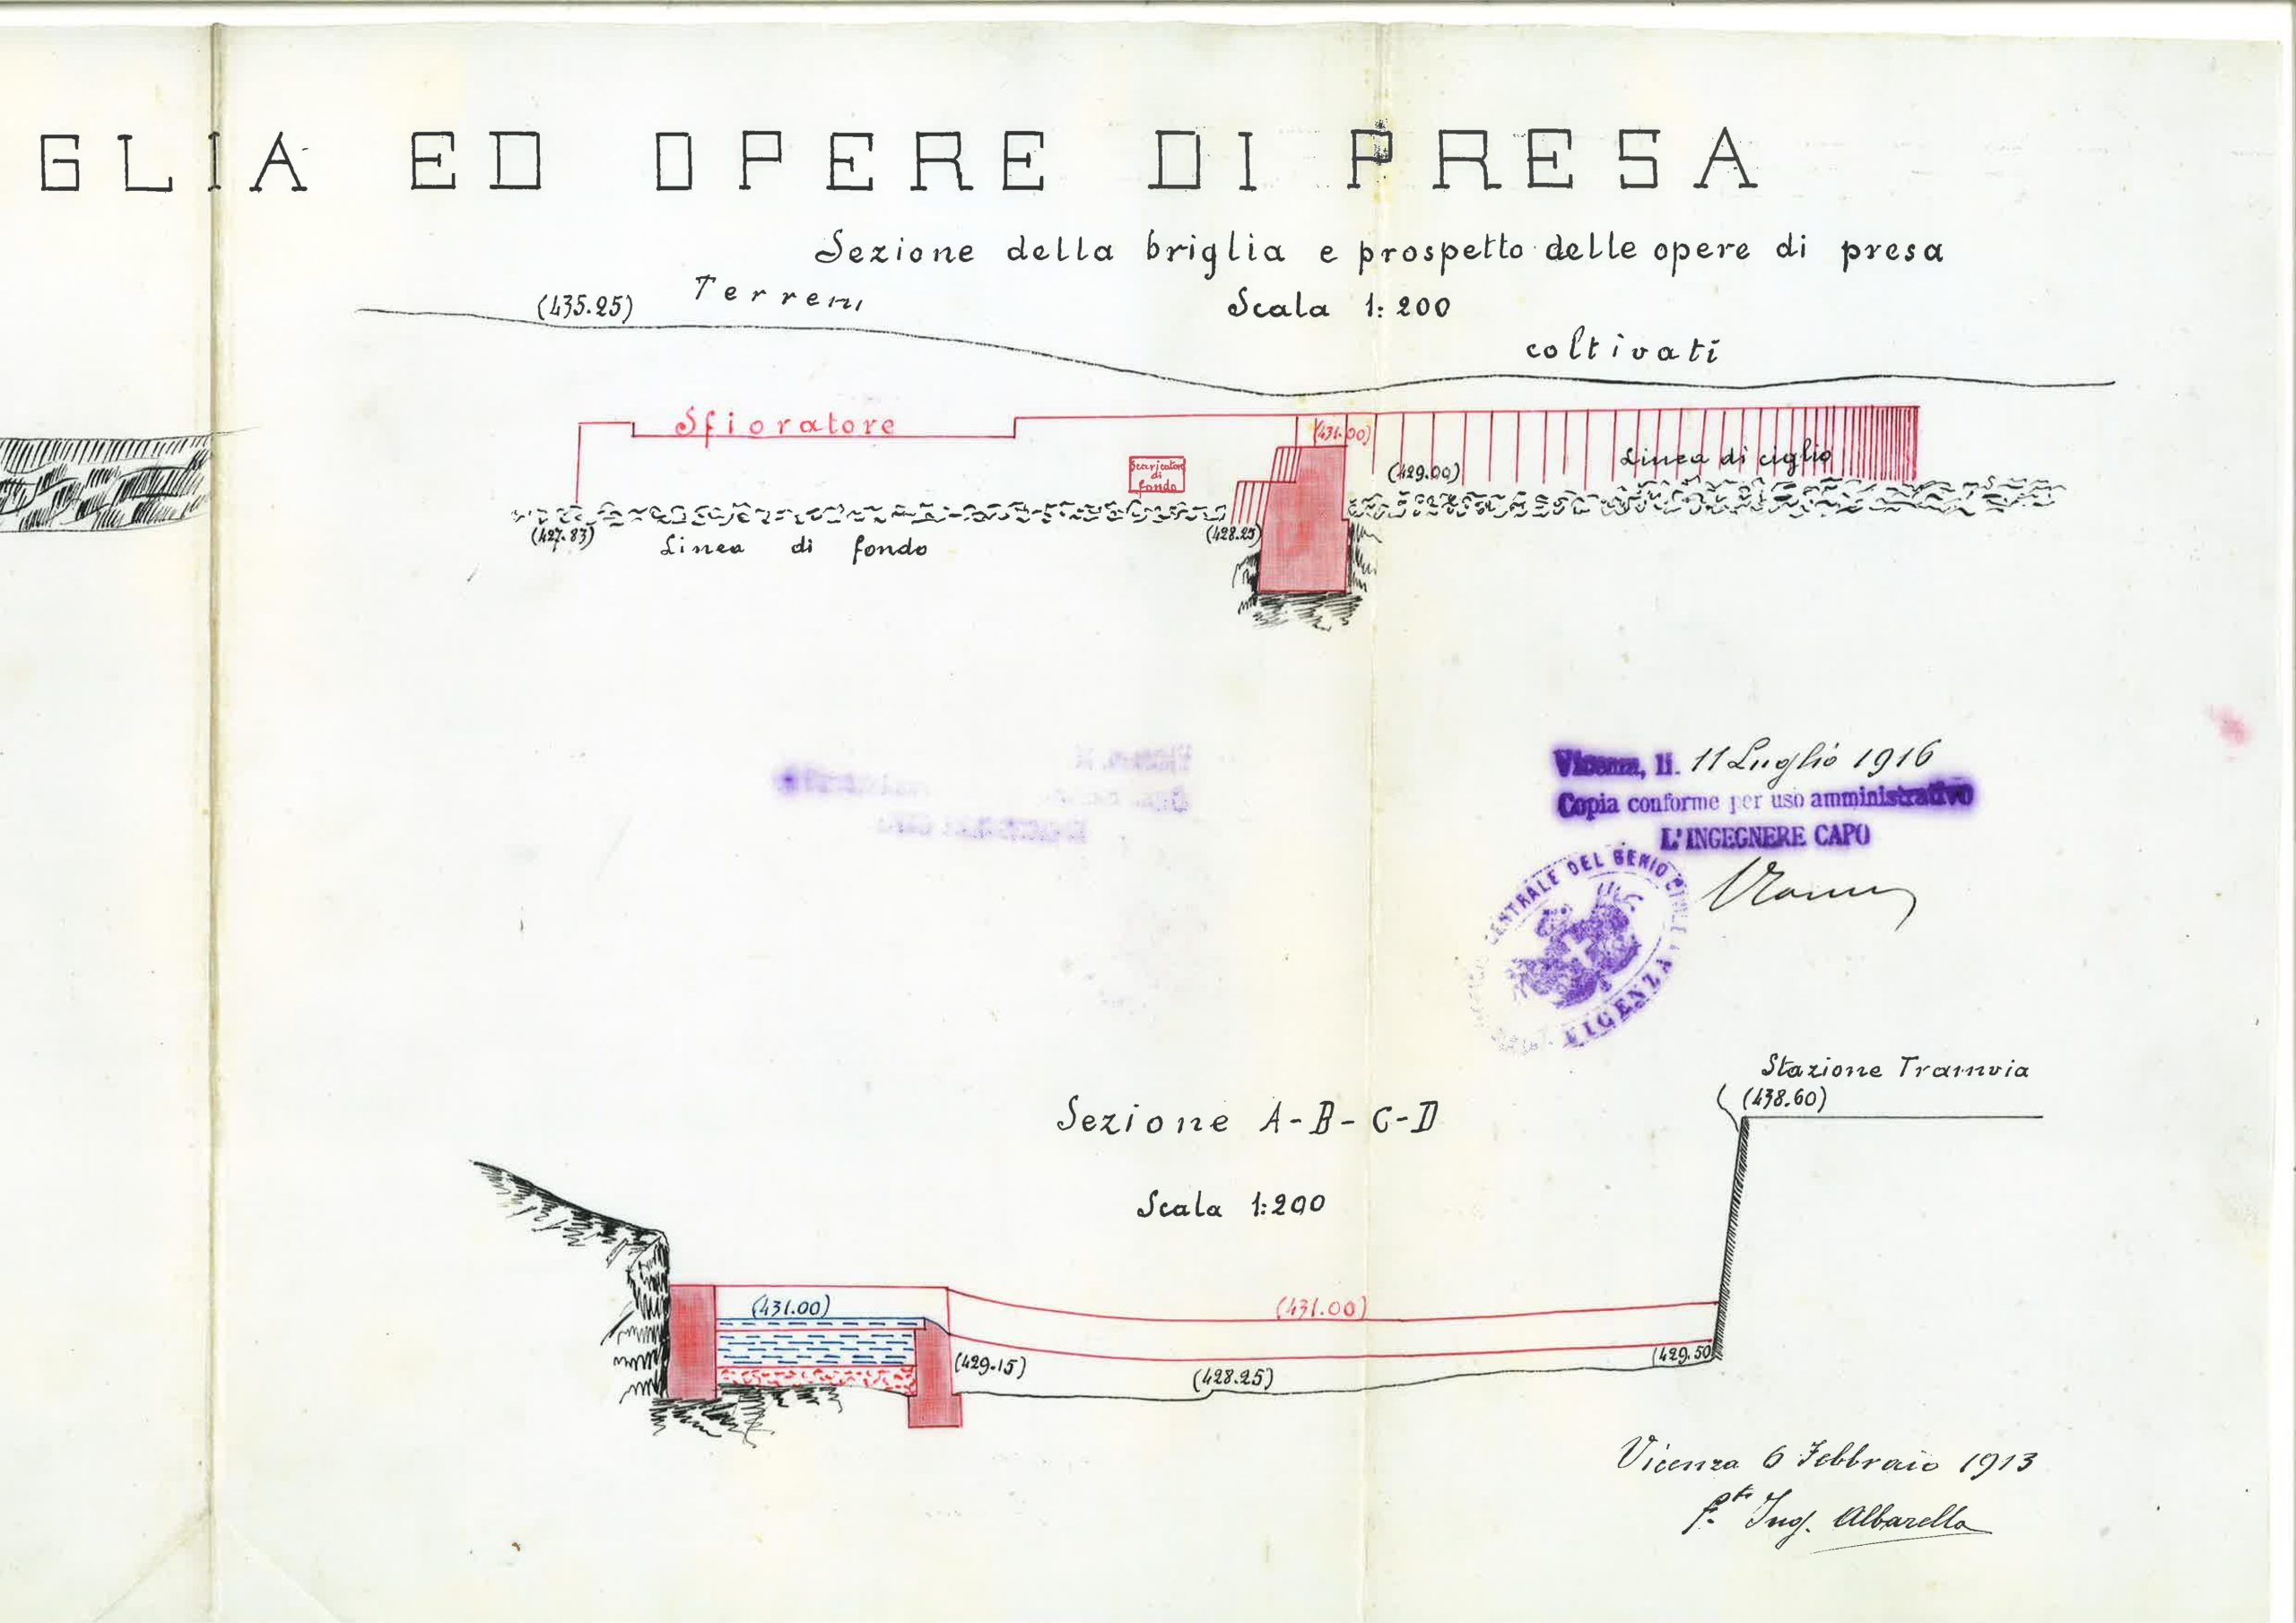 GLIA ED OPERE DI PRESA
Sezione della briglia e prospetto delle opere di presa
Scala 1:200
(435.25) Terreni
coltivati
Sfioratore
(431.00)
Scaricatore
di
fondo
(429.00)
Linea di ciglio
(427.83)
(428.25)
Linea di fondo
Vicenza, li. 11 Luglio 1916
Copia conforme per uso amministrativo
L'INGEGNERE CAPO
CENTRALE DEL GENIO CIVILE
VICENZA
Stazione Tramvia
(438.60)
Sezione A-B-C-D
Scala 1:200
(431.00)
(431.00)
(429.15)
(428.25)
(429.50)
Vicenza 6 Febbraio 1913
f.to Ing. Albarella